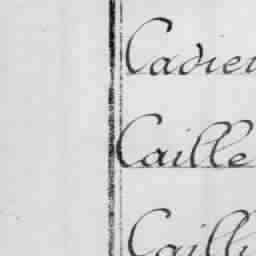 Cadieu
Caille
Cailly